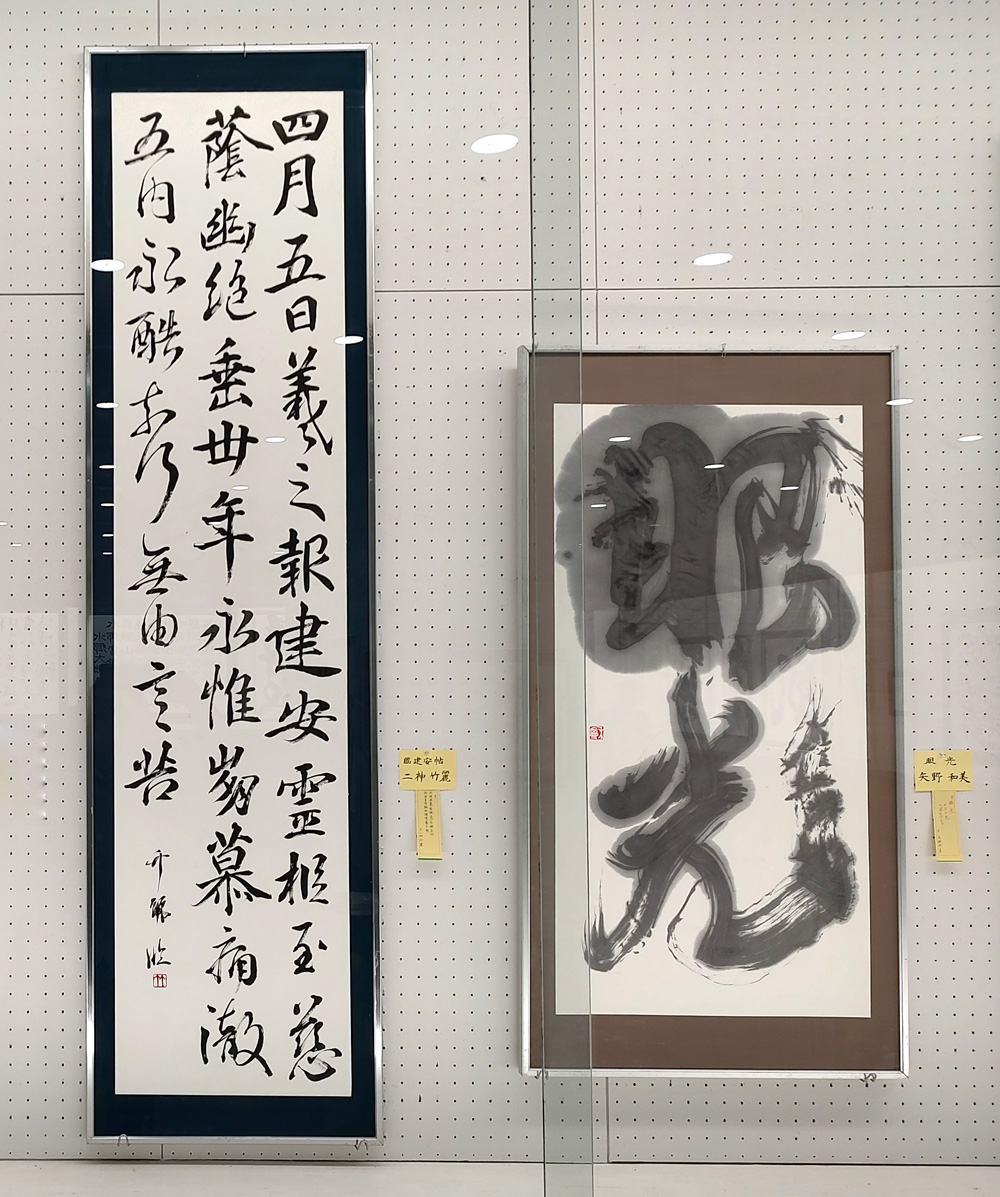 四月五日羲之報建安靈柩至慈
蔭幽絶垂卅年永惟崩慕痛澈
五内永酷奈何無由言苦
竹麗臨
臨建安帖
二神 竹麗
光
矢野 和美